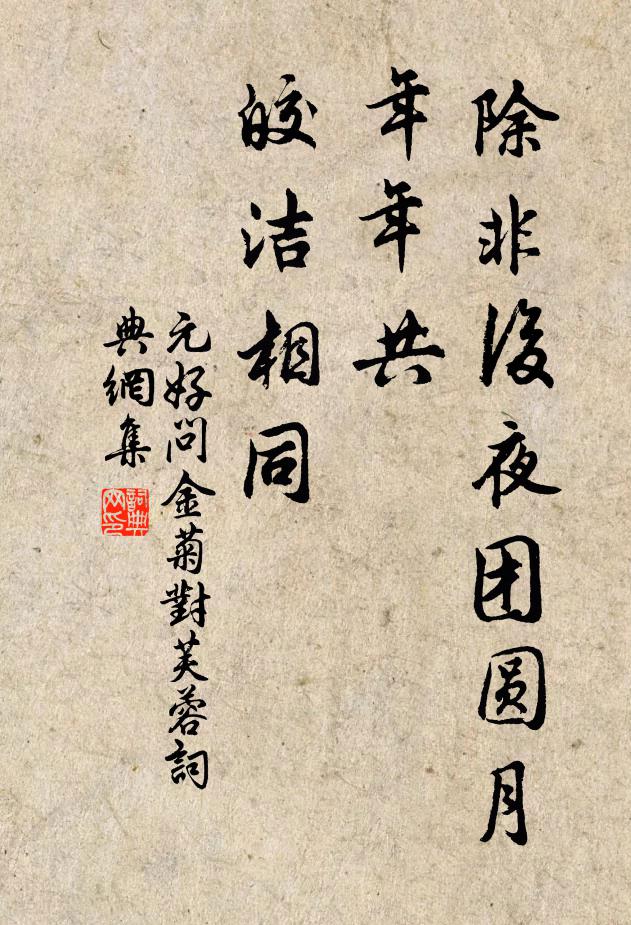 除非後夜团圆月
年年共
皎洁相同
元好问金菊對芙蓉詞
典網集
詞典
网印